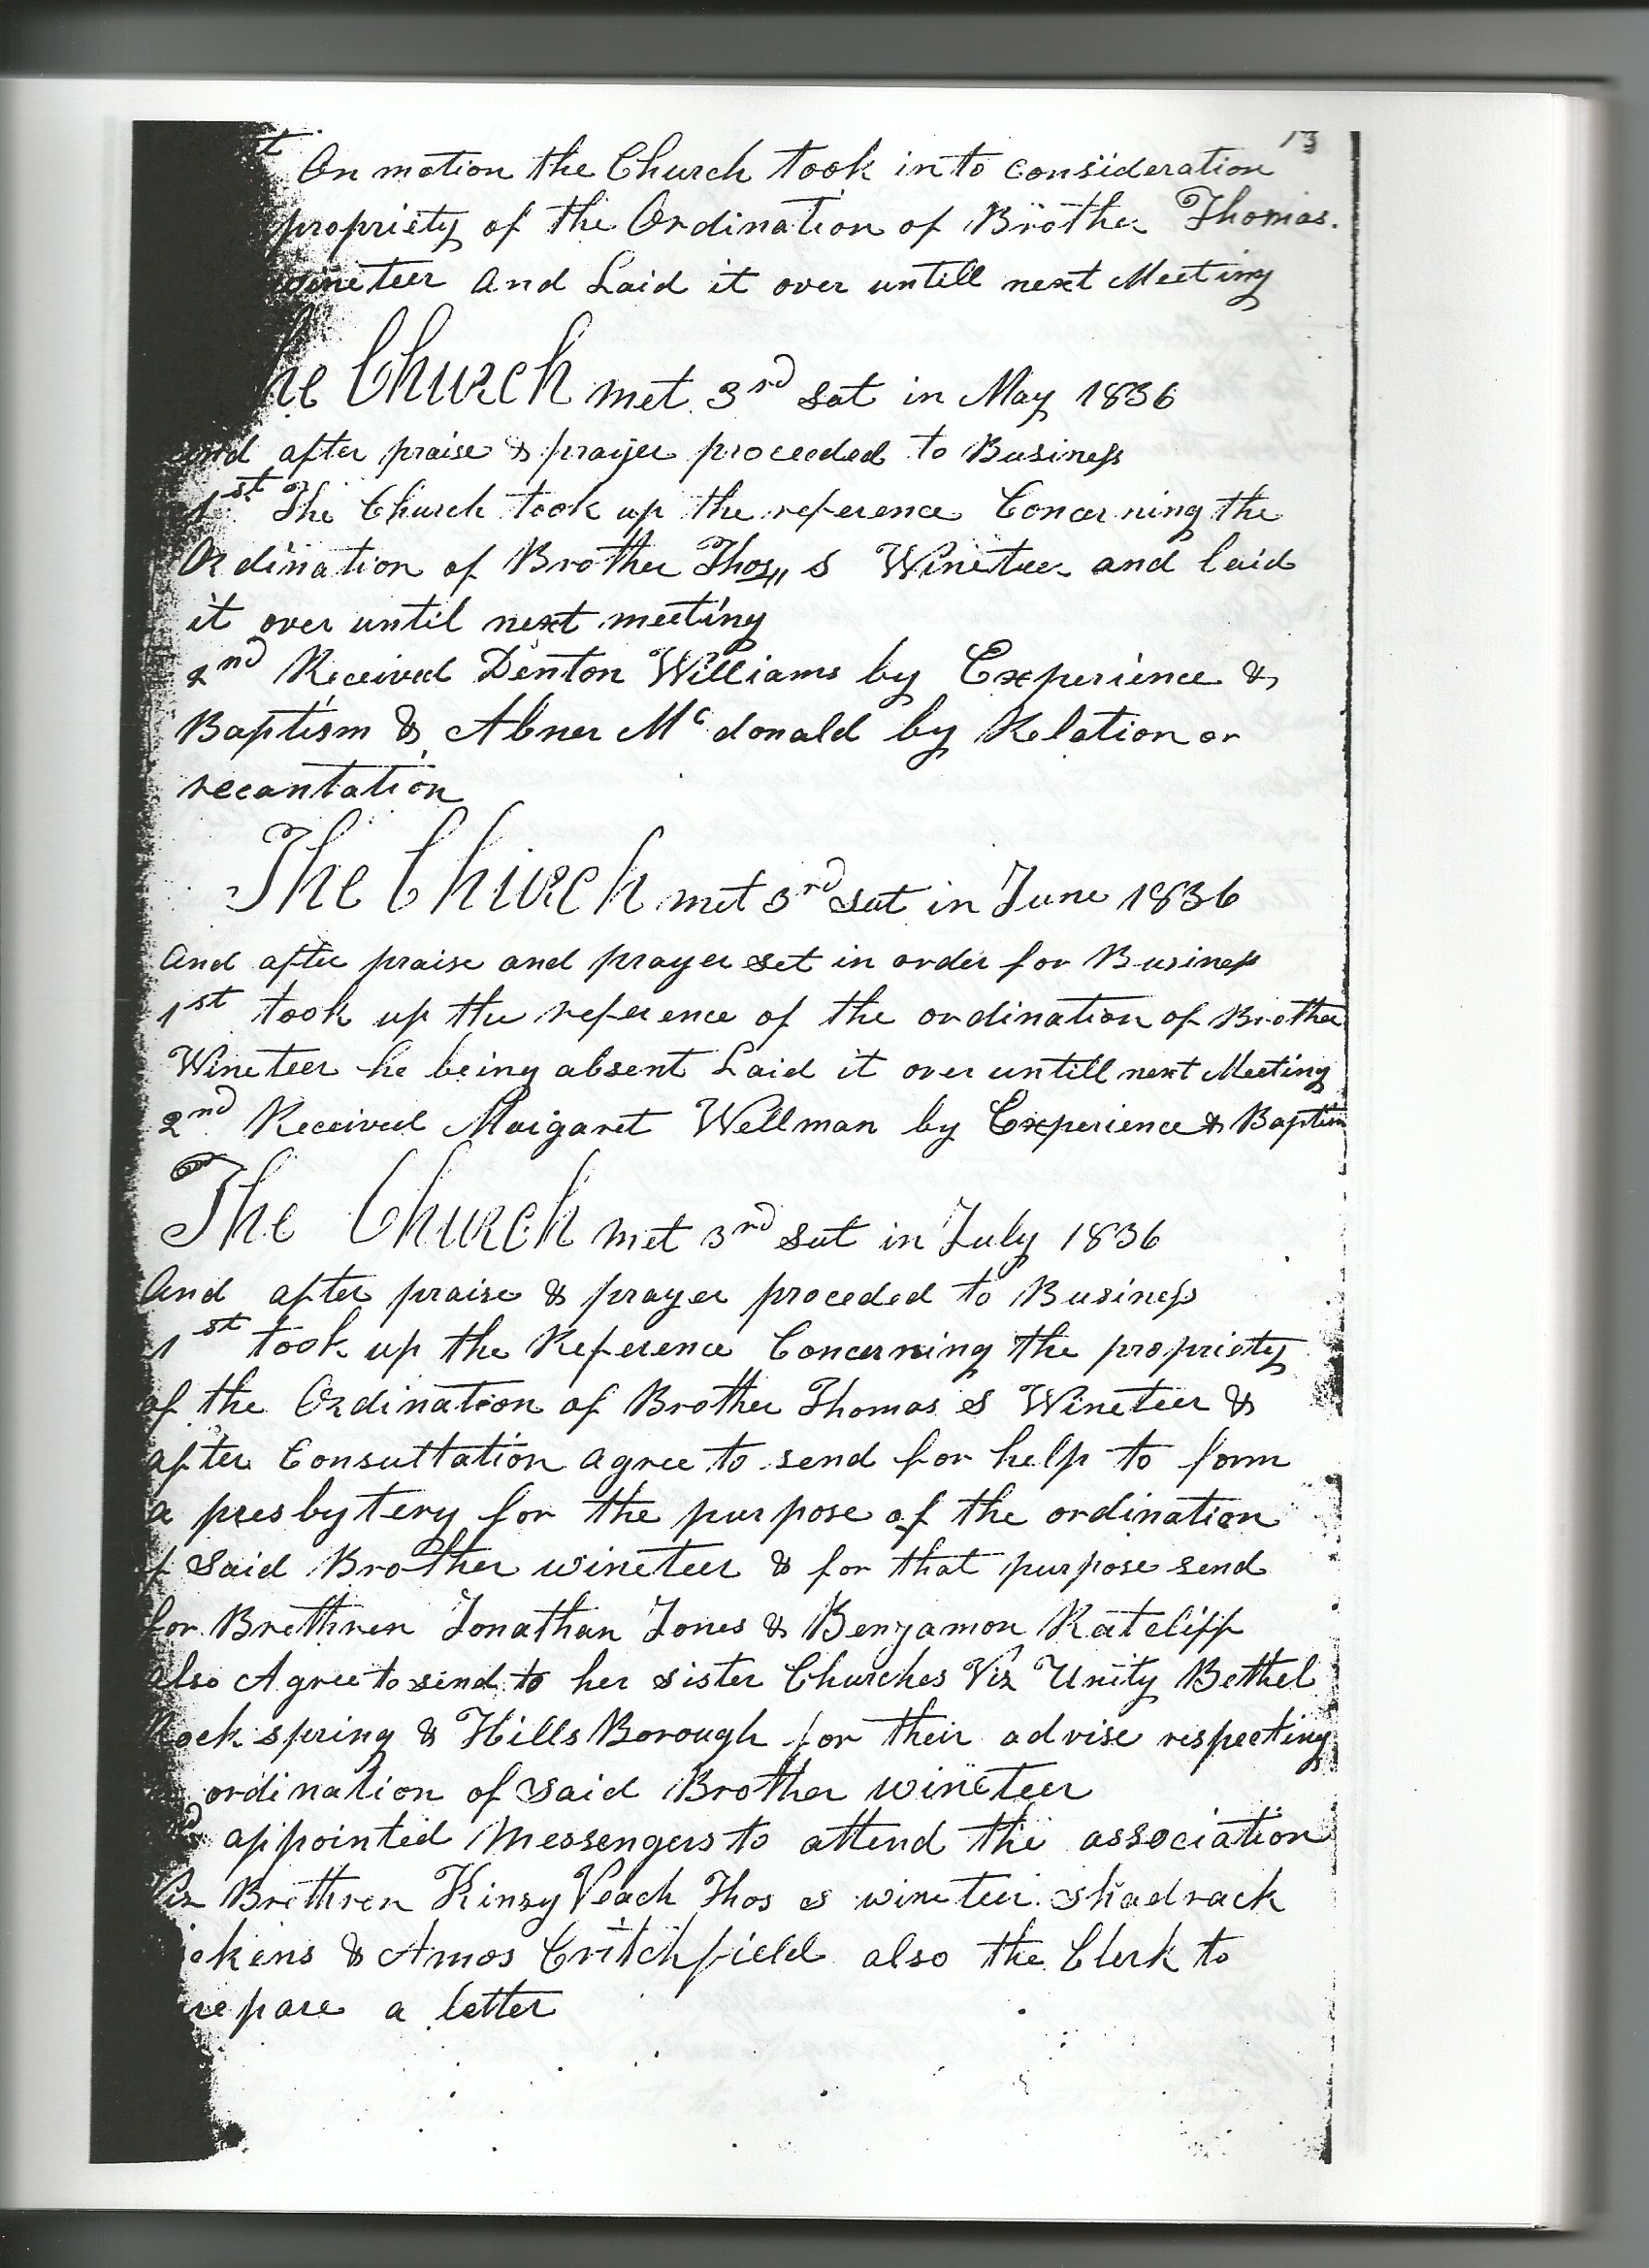 13
t On motion the Church took into consideration
propriety of the Ordination of Brother Thomas.
wineteer And Laid it over untill next Meeting
he Church met 3rd sat in May 1836
and after praise & prayer proceeded to Business
1st The Church took up the reference Concerning the
Ordination of Brother Thos,, S Wineteer and laid
it over until next meeting
2nd Received Denton Williams by Experience &
Baptism & Abner Mcdonald by Relation or
recantation
The Church met 3rd sat in June 1836
And after praise and prayer set in order for Business
1st took up the reference of the ordination of Brother
Wineteer he being absent Laid it over untill next Meeting
2nd Received Margaret Wellman by Experience & Baptism
The Church met 3rd sat in July 1836
And after praise & prayer proceded to Business
1st took up the Reference Concerning the propriety
of the Ordination of Brother Thomas S Wineteer &
after Consultation agree to send for help to form
a presbytery for the purpose of the ordination
f Said Brother wineteer & for that purpose send
for Brethren Jonathan Jones & Benjamon Ratcliff
also Agree to send to her sister Churches Viz Unity Bethel
Rock spring & HillsBorough for their advise respecting
ordination of said Brother wineteer
d appointed Messengers to attend the association
Viz Brethren Kinzy Veach Thos S wineteer shadrack
ckens & Amos Critchfield also the Clerk to
repare a letter